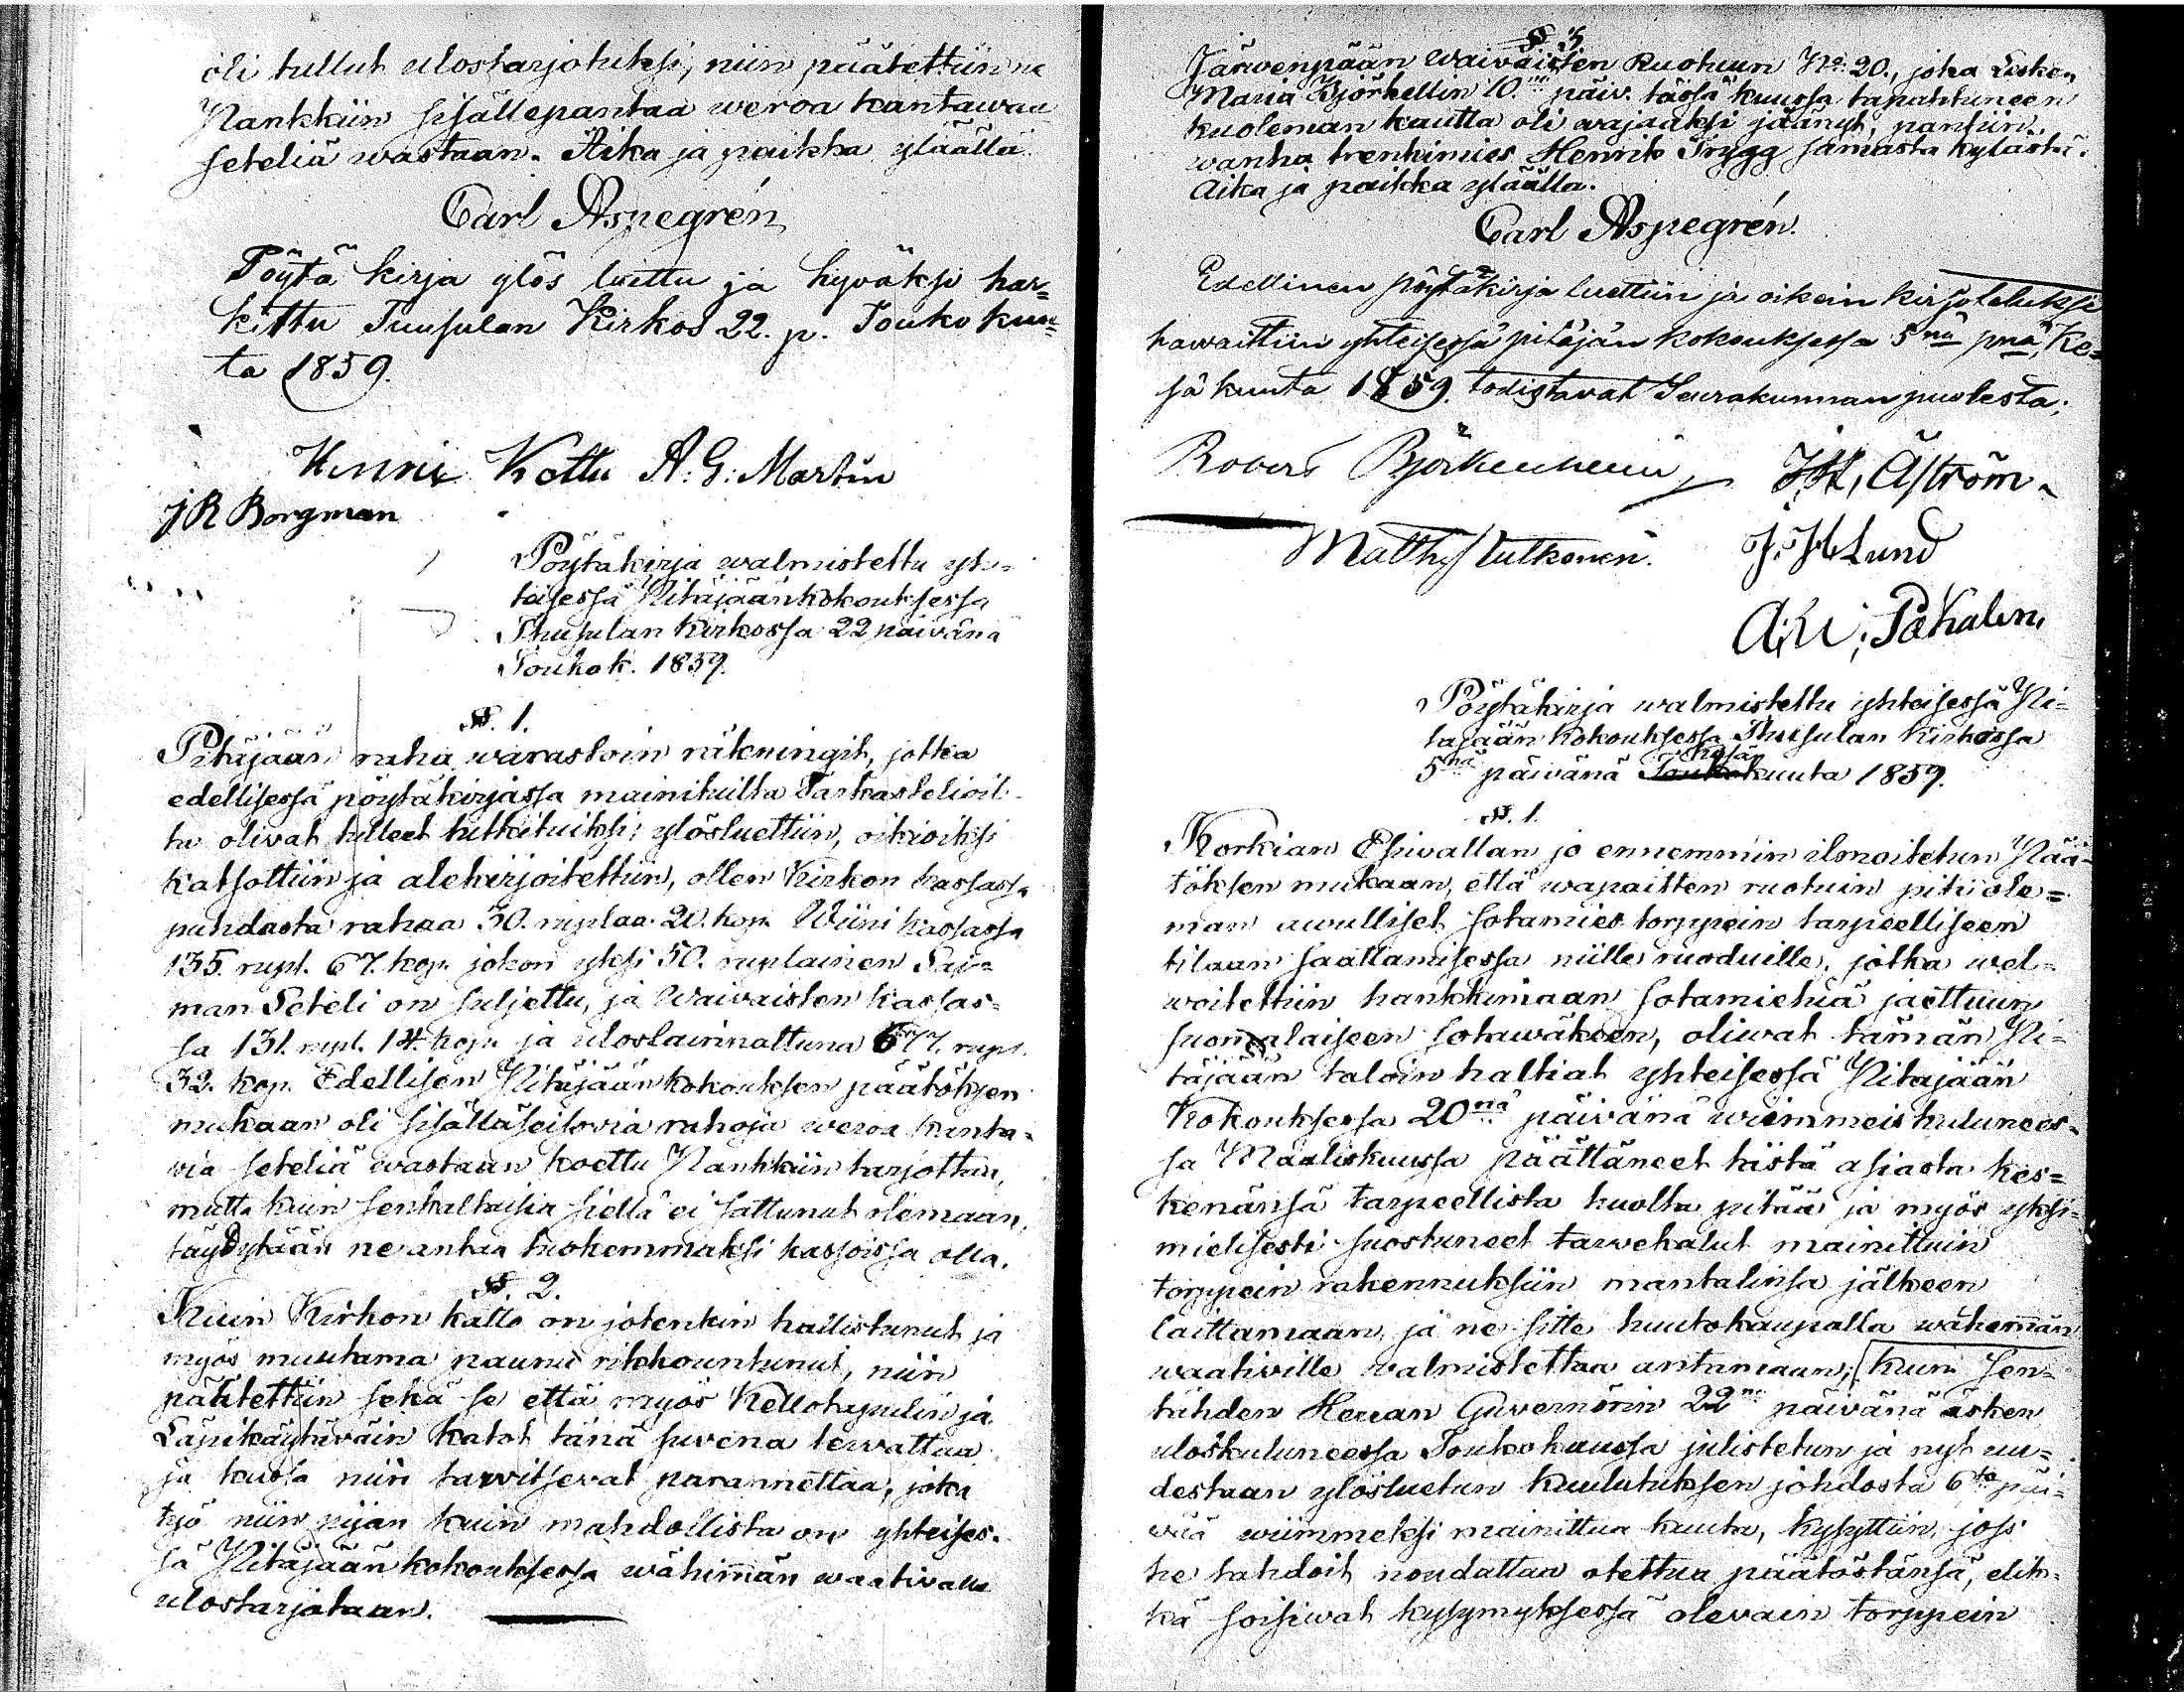 oli tullut ulostarjotuksi, niin päätettiin ne
Pankkiin sisällepantaa weroa kantawaa
seteliä wastaan. Aika ja paikka ylläällä.
Carl Aspegrén
Pöytä kirja ylös luettu ja hyväksi har=
kittu Tuusulan Kirkos 22. p. Touko kuu=
ta 1859.
Henric Kottu A: G: Martin
J R Borgman
Pöytäkirja walmistettu yh=
teisessä Pitäjäänkokouksessa
Thusulan kirkossa 22 päivänä
Toukok. 1859.
§. 1.
Pitäjään raha warastoin räkningit, jotka
edellisessä pöytäkirjassa mainituilta Tarkastelioil-
ta olivat tulleet tutkituiksi, ylösluettiin, oikioiksi
katsottiin ja alekirjoitettiin, ollen Kirkon kassassa
puhdasta rahaa 30. ruplaa 20. kop. Wiini kassassa
135. rupl. 67. kop. johon yksi 50. ruplainen Sai=
man Seteli on suljettu, ja Waivaisten kassas=
sa 131. rupl. 14. kop. ja uloslainnattuna 677. rupl.
32. kop. Edellisen Pitäjäänkokouksen päätöksen
mukaan oli sisälläseisovia rahoja weroa kanta=
via seteliä wastaan koettu Pankkiin tarjottaa,
mutta kuin senkaltaisia siellä ei sattunut olemaan,
täydytään ne antaa tuohemmaksi kassoissa olla.
§. 2.
Kuin Kirkon katto on jotenkin hallistunut ja
myös muutama paanu rikkountunut, niin
päätettiin sekä se että myös Kellotapulin ja
Läpikäytäväin katot tänä suvena tervattaa
ja kussa niin tarvitsevat parannettaa, joka
työ niin pijan kuin mahdollista on yhteises=
sä Pitäjäänkokouksessa wähimän waativalle
ulostarjotaan.
§ 3
Järwenpään Waivaisten Ruotuun No: 20., joka Lesken
Maria Björkellin 10.nä päiv. tässä kuussa tapahtuneen
kuoleman kautta oli wajaaksi jäänyt, pantiin
wanha trenkimies Henrik Trygg samasta kylästä.
Aika ja paikka ylläällä.
Carl Aspegrén.
Edellinen pöytäkirja luettiin ja oikein kirjoteluksi
hawaittiin yhteisessä pitäjän kokouksessa 5nä pnä Ke=
sä kuuta 1859. todistavat Seurakunnan puolesta;
Robert Björkenheim J.H. Åström.
Matths Tutkonen. J. H Lund
Pöytäkirja walmistettu yhteisessä Pi=
täjään kokouksessa Thusulan kirkossa
Kesä
5nä päivänä Toukokuuta 1859.
§. 1.
Korkian Esivallan jo ennemmin ilmoitetun Pää=
töksen mukaan, että wapaitten ruotuin piti ole=
man awulliset sotamies torppein tarpeelliseen
tilaan saattamisessa niille ruoduille, jotka wel=
woitettiin hankkimaan sotamiehiä jaettuun
suomalaiseen sotawäkeen, oliwat tämän Pi=
täjään taloin haltiat yhteisessä Pitäjään
Kokouksessa 20nä päivänä wiimmeis kulunees=
sa Maaliskuussa päättäneet tästä asiasta kes=
kenänsä tarpeellista huolta pitää ja myös yksi=
mielisesti suostuneet tarvekalut mainittuin
torppein rakennuksiin mantalinsa jälkeen
laittamaan, ja ne sitte huutokaupalla wähemmän
waativille walmistettaa antamaan; kuin sen=
tähden Herran Guvernörin 22nä päivänä äsken
uloskuluneessa Toukokuussa julistetun ja nyt uu=
destaan ylösluetun kuulutuksen johdosta 6ta päi=
viä wiimmeksi mainittua kuuta, kysyttiin, joss
he tahdoit noudattaa otettua päätöstänsä, elik=
kä soisiwat kysymyksessä olevain torppein